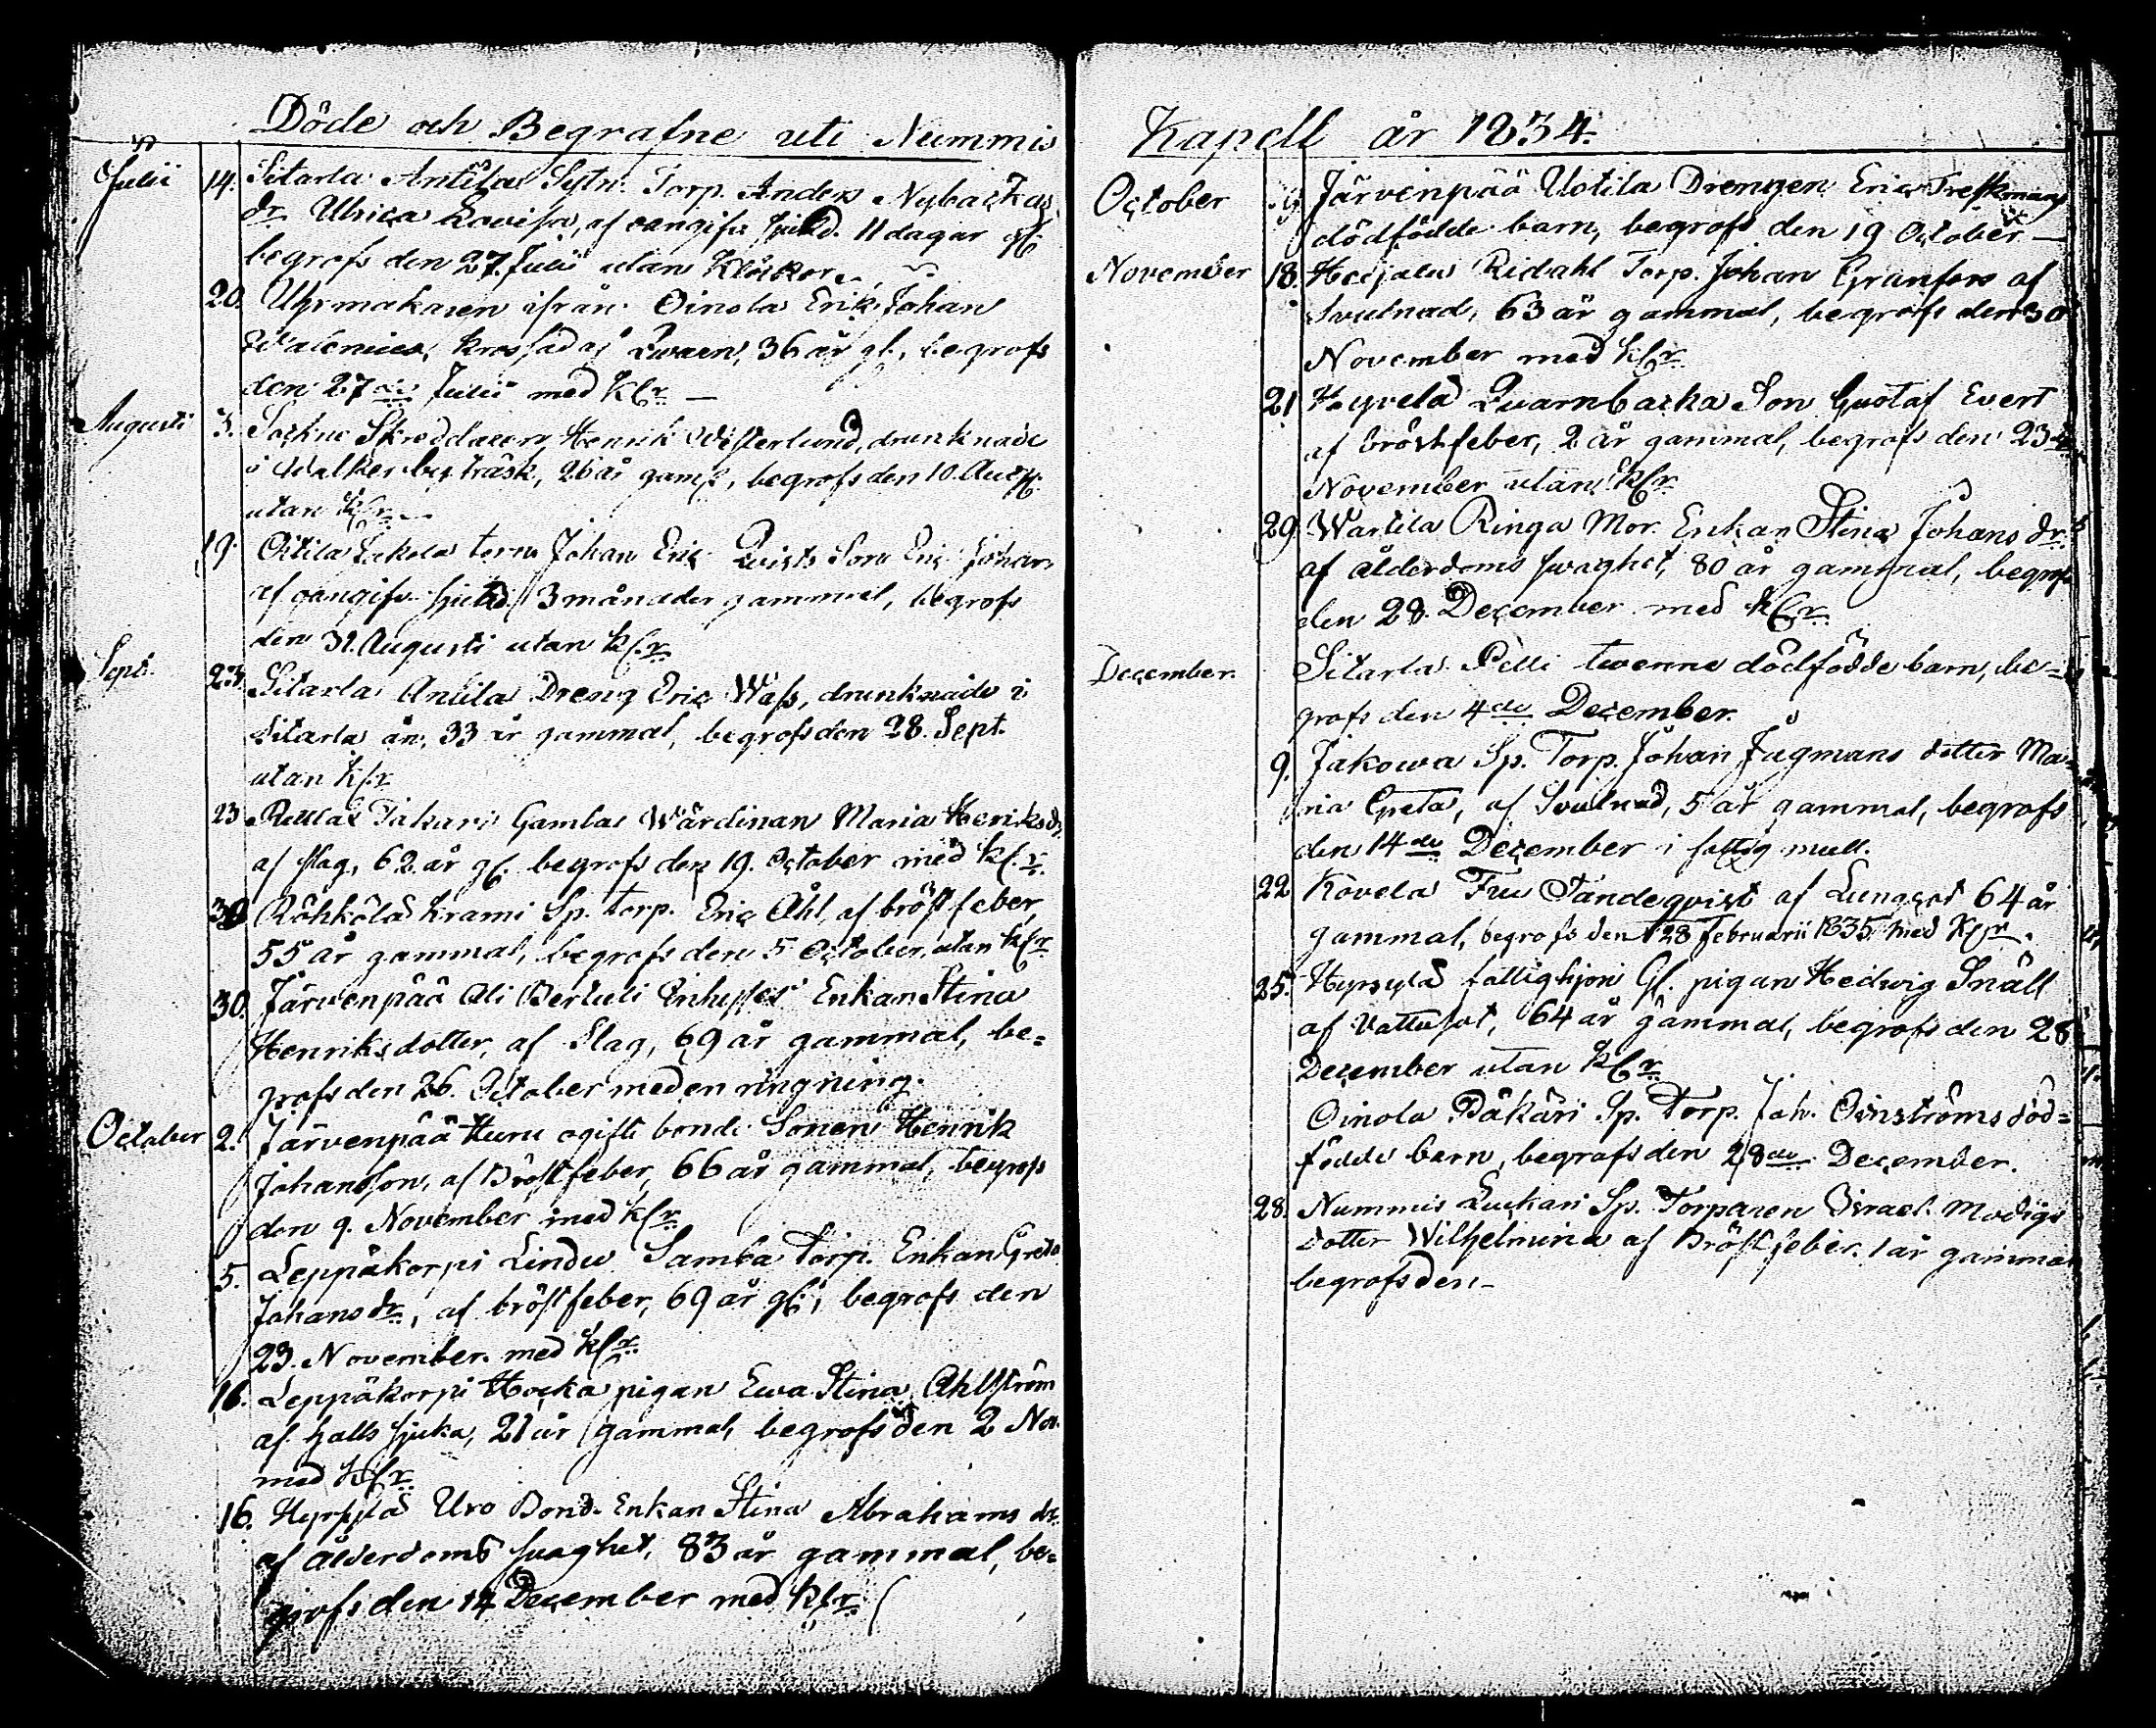 Döde och Begrafne uti Nummis
Julii 14. Sitarla Anttila Sytn. Torp. Anders Nybackas
dr Ulrica Lovisa, af oangifv. sjukd. 11 dagar gl.
begrofs den 27. Julii utan Klockor.
20. Uhrmakaren ifrån Oinola Erik Johan
krossad af Qvarn, 36 år gl., begrofs
den 27de Julii med klr.
Augusti 3. Skreddaren Henrik Vesterlund, drunknade
i Walkerby träsk, 26 år gaml, begrofs den 10. Aug.
utan klr.
19. Oitila torp. Johan Eric Qvists Son Eric Johan
af oangifv. sjukd. 3 månader gammal, begrofs
den 31. Augusti utan klr.
Sept. 23. Sitarla Anttila Dreng Eric Wass, drunknade i
Sitarla ån, 33 år gammal, begrofs den 28. Sept.
utan klr.
23. Pakari Gamla Wärdinan Maria Henriksdr
af slag, 62 år gl. begrofs den 19. October med klr.
30 Röhkölä Krami Sp. torp. Eric Åhl, af bröstfeber,
55 år gammal, begrofs den 5 October, utan klr.
30. Järvenpää Ali Bertuli Inhyses Enkan Stina
Henriksdotter, af Slag, 69 år gammal, be=
grofs den 26. October med en ringning.
October 2. Järvenpää Huru ogifte bonde Sonen Henrik
Johansson, af Bröstfeber, 66 år gammal, begrofs
den 9. November med klr.
5. Leppäkorpi Lindu Samba Torp. Enkan Greta
Johansdr., af bröstfeber, 69 år gl., begrofs den
23. November med klr.
16. Leppäkorpi Hocka pigan Ewa Stina Ahlström
af halssjuka, 21 år gammal, begrofs den 2 Nov.
med klr.
16. Hyrsylä Uro Bond. Enkan Stina Abrahams dr.
af ålderdoms svaghet, 83 år gammal, be=
grofs den 14 December med klr.
Kapell år 1834.
October 19 Järvenpää Uotila Drengen Eric Treskmans
dödfödde barn, begrofs den 19 October —
November 18. Ridahl Torp. Johan Granfors af
Svulnad, 63 år gammal, begrofs den 30
November med klr.
21 Qvarnbacka Son Gustaf Evert
af bröstfeber, 2 år gammal, begrofs den 23de
November utan klr.
29. Wartila Ringa Mor. Enkan Stina Johans dr.
af ålderdoms svaghet, 80 år gammal, begrofs
den 28. December med klr.
December. Sitarla Pelli twenne dödfödde barn, be=
grofs den 4de December.
9. Jakowa Sp. Torp. Johan Jugmans dotter Ma=
ria Greta, af Svulnad, 5 år gammal, begrofs
den 14de December i fattig mull.
22 Kovela Fru Tandeqvist af Lungsot 64 år
gammal, begrofs den 28 Februarii 1835 med klr.
25. Hyrsylä fattighjon Gl. pigan Hedwig Snäll
af Vattusot, 64 år gammal, begrofs den 28
December utan klr.
Oinola Päkäri Sp. Torp. Joh. Örnströms död=
födde barn, begrofs den 28de December.
28. Nummis Luckari Sp. Torparen Israel Modigs
dotter Wilhelmina af Bröstfeber. 1 år gammal
begrofs den –